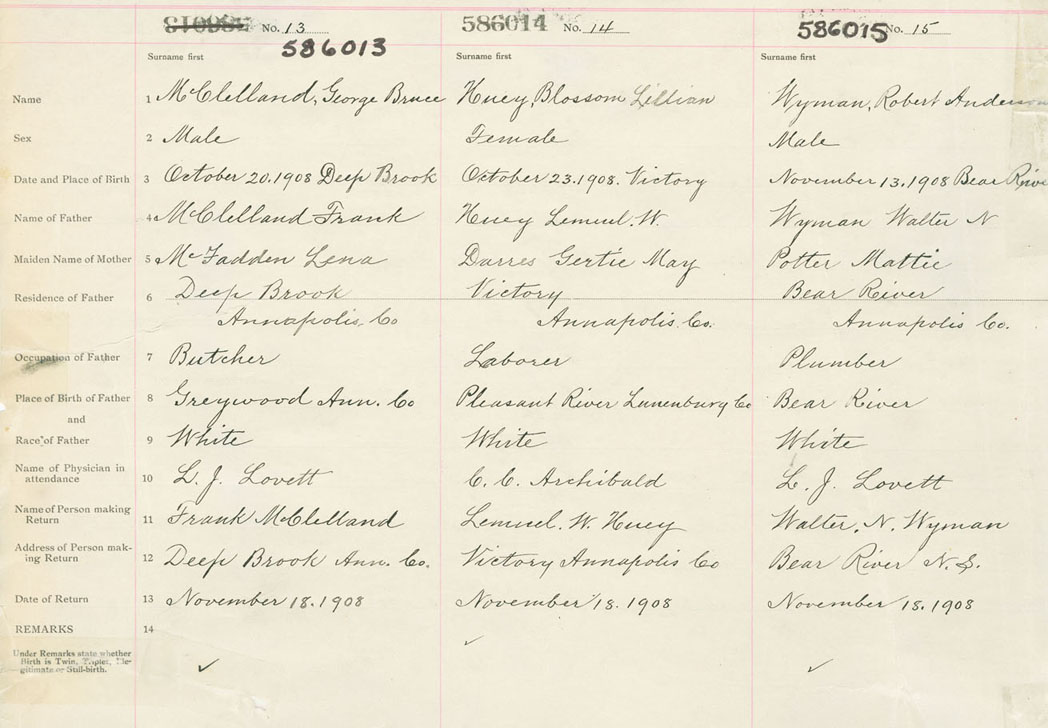 No. 13 586014 No. 14 586015 No. 15
586013
Surname first Surname first Surname first
Name 1 McClelland, George Bruce Huey, Blossom Lillian Wyman, Robert Anderson
Sex 2 Male Female Male
Date and Place of Birth 3 October 20.1908 Deep Brook October 23.1908. Victory November 13.1908 Bear River
Name of Father 4 McClelland Frank Huey Lemuel. W. Wyman Walter N
Maiden Name of Mother 5 McFadden Lena Darres Gertie May Potter Mattie
Residence of Father 6 Deep Brook Victory Bear River
Annapolis. Co Annapolis. Co. Annapolis Co.
Occupation of Father 7 Butcher Laborer Plumber
Place of Birth of Father 8 Greywood Ann. Co Pleasant River Lunenburg Co Bear River
and
Race of Father 9 White White White
Name of Physician in
attendance 10 L. J. Lovett C. C. Archibald L. J. Lovett
Name of Person making
Return 11 Frank McClelland Lemuel. W. Huey Walter. N. Wyman
Address of Person mak-
ing Return 12 Deep Brook Ann. Co. Victory Annapolis Co Bear River N.S.
Date of Return 13 November 18.1908 November 18.1908 November 18.1908
REMARKS 14
Under Remarks state whether
Birth is Twin, Triplet, Ille-
gitimate or Still-birth.